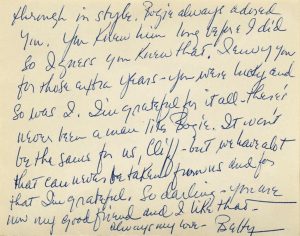 through in style. Bogie always adored
you. You knew him long before I did
so I guess you knew that. I envy you
for those extra years - you were lucky and
so was I. I'm grateful for it all - there's
never been a man like Bogie. It won't
be the same for us, Cliff - but we have a lot
that can never be taken from us and for
that I'm grateful. So darling - you are
now my good friend and I like that -
always my love - Betty